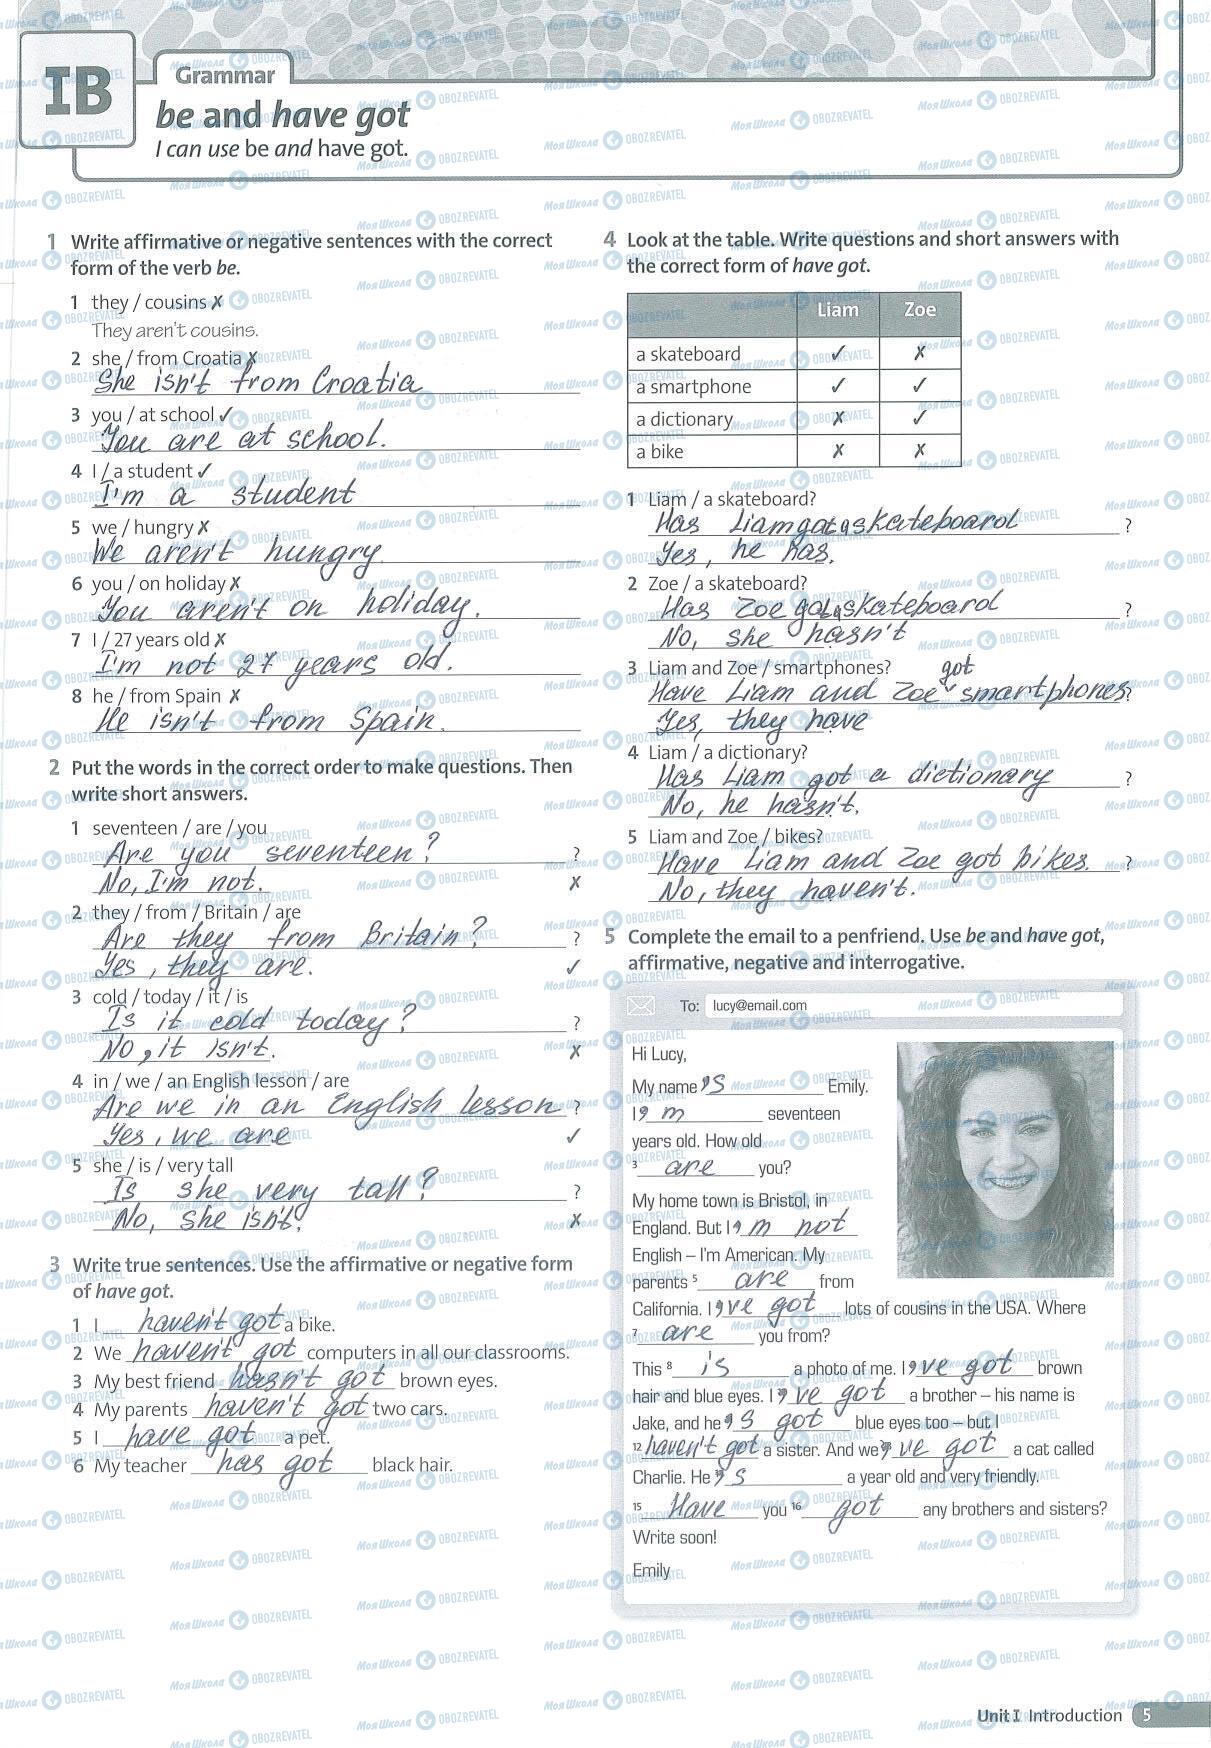 IB
Grammar
be and have got
I can use be and have got.
1 Write affirmative or negative sentences with the correct
form of the verb be.
1 they / cousins ✗
They aren't cousins.
2 she / from Croatia ✗
She isn't from Croatia
3 you / at school ✓
You are at school.
4 I / a student ✓
I'm a student
5 we / hungry ✗
We aren't hungry.
6 you / on holiday ✗
You aren't on holiday.
7 I / 27 years old ✗
I'm not 27 years old.
8 he / from Spain ✗
He isn't from Spain.
2 Put the words in the correct order to make questions. Then
write short answers.
1 seventeen / are / you
Are you seventeen? ?
No, I'm not. ✗
2 they / from / Britain / are
Are they from Britain? ?
Yes, they are. ✓
3 cold / today / it / is
Is it cold today? ?
No, it isn't. ✗
4 in / we / an English lesson / are
Are we in an English lesson ?
Yes, we are ✓
5 she / is / very tall
Is she very tall? ?
No, she isn't. ✗
3 Write true sentences. Use the affirmative or negative form
of have got.
1 I haven't got a bike.
2 We haven't got computers in all our classrooms.
3 My best friend hasn't got brown eyes.
4 My parents haven't got two cars.
5 I have got a pet.
6 My teacher has got black hair.
4 Look at the table. Write questions and short answers with
the correct form of have got.
Liam Zoe
a skateboard ✓ ✗
a smartphone ✓ ✓
a dictionary ✗ ✓
a bike ✗ ✗
1 Liam / a skateboard?
Has Liam got a skateboard ?
Yes, he has.
2 Zoe / a skateboard?
Has Zoe got a skateboard ?
No, she hasn't
3 Liam and Zoe / smartphones?
Have Liam and Zoe got smartphones ?
Yes, they have
4 Liam / a dictionary?
Has Liam got a dictionary ?
No, he hasn't.
5 Liam and Zoe / bikes?
Have Liam and Zoe got bikes. ?
No, they haven't.
5 Complete the email to a penfriend. Use be and have got,
affirmative, negative and interrogative.
To: lucy@email.com
Hi Lucy,
My name 's Emily.
I 'm seventeen
years old. How old
3 are you?
My home town is Bristol, in
England. But I 'm not
English – I'm American. My
parents 5 are from
California. I 've got lots of cousins in the USA. Where
7 are you from?
This 8 is a photo of me. I 've got brown
hair and blue eyes. I 've got a brother – his name is
Jake, and he 's got blue eyes too – but I
12 haven't got a sister. And we 've got a cat called
Charlie. He 's a year old and very friendly.
15 Have you 16 got any brothers and sisters?
Write soon!
Emily
Unit I Introduction 5
МояШкола OBOZREVATEL